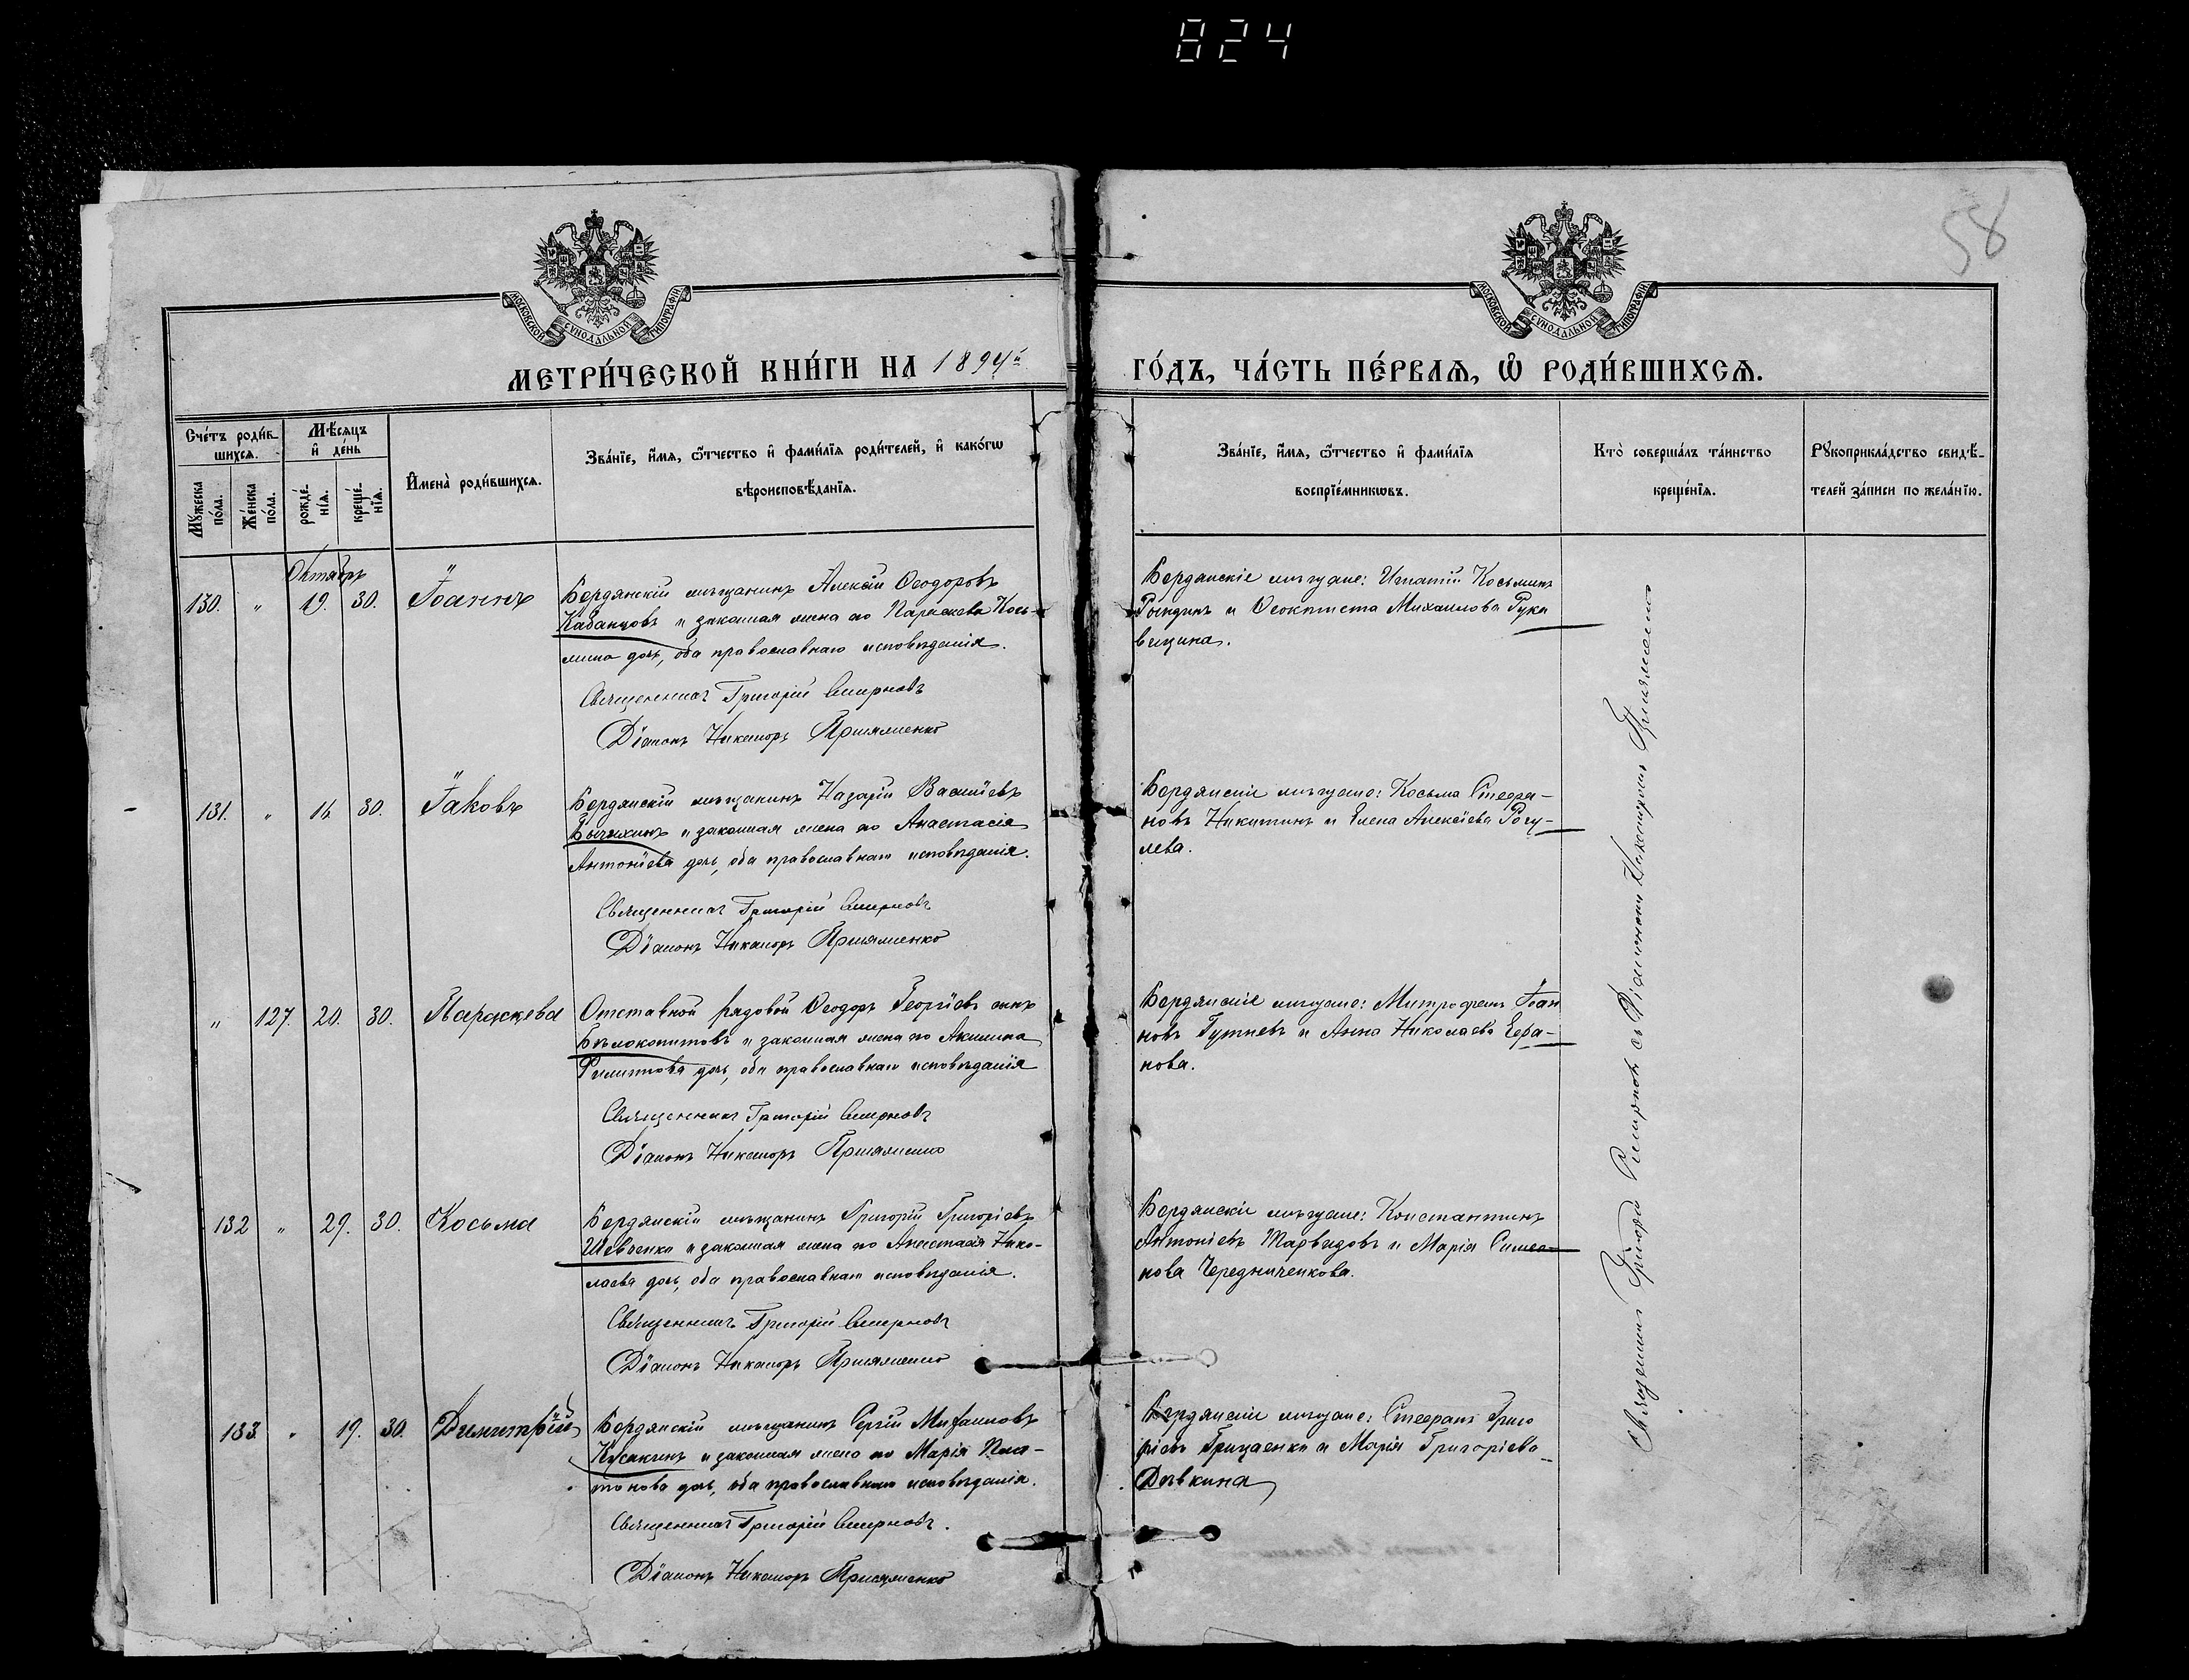 824
58
МОСКОВСКОЙ СѴНОДАЛЬНОЙ ТИПОГРАФІИ
МОСКОВСКОЙ СѴНОДАЛЬНОЙ ТИПОГРАФІИ
МЕТРИ́ЧЕСКОЙ КНИ́ГИ НА 1894й ГО́ДЪ, ЧА́СТЬ ПЕ́РВАѦ, Ѽ РОДИ́ВШИХСѦ.
Сче́тъ роди́в-
шихсѧ.
Мꙋ́жеска по́ла.
Же́нска по́ла.
Мѣ́сѧцъ
и҆ де́нь
рожде́-
нїѧ.
креще́-
нїѧ.
И҆мена̀ роди́вшихсѧ.
Зва́нїе, и҆́мѧ, ѻ҆́тчество и҆ фами́лїѧ роди́телей, и҆ како́гѡ
вѣроисповѣ́данїѧ.
Зва́нїе, и҆́мѧ, ѻ҆́тчество и҆ фами́лїѧ
воспрїе́мникѡвъ.
Кто̀ соверша́лъ та́инство
креще́нїѧ.
Рꙋкоприкла́дство свидѣ́-
телей за́писи по жела́нїю.
Октябрь
130. " 19. 30. Іоаннъ
Бердянскій мѣщанинъ Алексій Ѳеодоровъ
Кабанцовъ и законная жена его Параскева Кось-
мина дочь, оба православнаго исповѣданія.
Священникъ Григорій Смирновъ
Діаконъ Никаноръ Прияженко
Бердянскіе мѣщане: Игнатій Косьминъ
Рындинъ и Ѳеоктиста Михаилова Рука
вицина.
131. " 16 30. Іаковъ
Бердянскій мѣщанинъ Назарій Васильевъ
Бычихинъ и законная жена его Анастасія
Антоніева дочь, оба православнаго исповѣданія.
Священникъ Григорій Смирновъ
Діаконъ Никаноръ Прияженко
Бердянскіе мѣщане: Косьма Стефа-
новъ Никитинъ и Елена Алексіева Рогу-
лева.
" 127. 20. 30. Параскева
Отставной рядовой Ѳеодоръ Георгіевъ сынъ
Бѣлокопытовъ и законная жена его Акилина
Филиппова дочь, оба православнаго исповѣданія
Священникъ Григорій Смирновъ
Діаконъ Никаноръ Прияженко
Бердянскіе мѣщане: Митрофанъ Іоан
новъ Гутневъ и Анна Николаева Ефа-
нова.
132 " 29. 30. Косьма
Бердянскій мѣщанинъ Григорій Григоріевъ
Шевченко и законная жена его Анастасія Нико-
лаева дочь, оба православнаго исповѣданія.
Священникъ Григорій Смирновъ
Діаконъ Никаноръ Прияженко
Бердянскіе мѣщане: Константинъ
Антоніевъ и Марія Симео-
нова Чередниченкова.
133. " 19. 30. Димитрій
Бердянскій мѣщанинъ Сергій Михаиловъ
Кусакинъ и законная жена его Марія Пла-
тонова дочь, оба православнаго исповѣданія.
Священникъ Григорій Смирновъ.
Діаконъ Никаноръ Прияженко
Бердянскіе мѣщане: Стефанъ Григо
ріевъ Грицаенко и Марія Григоріева
Дѣвкина
Священникъ Григорій Смирновъ съ Діакономъ Никаноромъ Прияженко